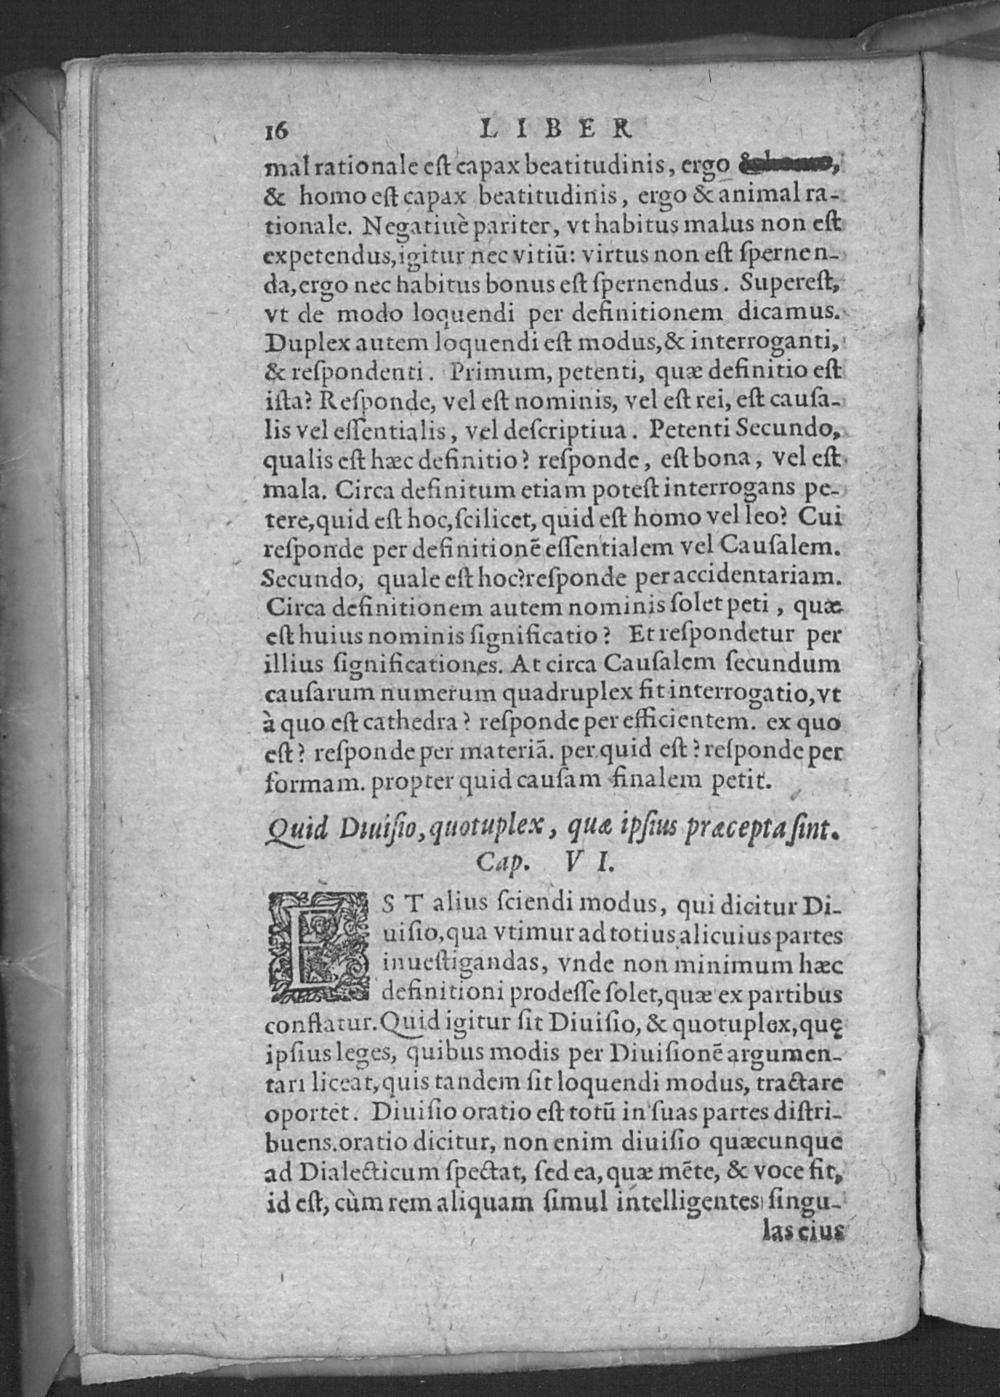 16 LIBER
mal rationale eſt capax beatitudinis, ergo
& homo eſt capax beatitudinis, ergo & animal ra-
tionale. Negatiuè pariter, vt habitus malus non eſt
expetendus, igitur nec vitiũ: virtus non eſt ſpernen-
da, ergo nec habitus bonus eſt ſpernendus. Supereſt,
vt de modo loquendi per definitionem dicamus.
Duplex autem loquendi eſt modus, & interroganti,
& reſpondenti. Primum, petenti, quæ definitio eſt
iſta? Reſponde, vel eſt nominis, vel eſt rei, eſt cauſa-
lis vel eſſentialis, vel deſcriptiua. Petenti Secundo,
qualis eſt hæc definitio? reſponde, eſt bona, vel eſt
mala. Circa definitum etiam poteſt interrogans pe-
tere, quid eſt hoc, ſcilicet, quid eſt homo vel leo? Cui
reſponde per definitionẽ eſſentialem vel Cauſalem.
Secundo, quale eſt hoc? reſponde per accidentariam.
Circa definitionem autem nominis ſolet peti, quæ
eſt huius nominis ſignificatio? Et reſpondetur per
illius ſignificationes. At circa Cauſalem ſecundum
cauſarum numerum quadruplex fit interrogatio, vt
à quo eſt cathedra? reſponde per efficientem. ex quo
eſt? reſponde per materiã. per quid eſt? reſponde per
formam. propter quid cauſam finalem petit.
Quid Diuiſio, quotuplex, quæ ipſius præcepta ſint.
Cap. VI.
EST alius ſciendi modus, qui dicitur Di-
uiſio, qua vtimur ad totius alicuius partes
inueſtigandas, vnde non minimum hæc
definitioni prodeſſe ſolet, quæ ex partibus
conflatur. Quid igitur ſit Diuiſio, & quotuplex, quę
ipſius leges, quibus modis per Diuiſionẽ argumen-
tari liceat, quis tandem ſit loquendi modus, tractare
oportet. Diuiſio oratio eſt totũ in ſuas partes diſtri-
buens. oratio dicitur, non enim diuiſio quæcunque
ad Dialecticum ſpectat, ſed ea, quæ mẽte, & voce fit,
id eſt, cùm rem aliquam ſimul intelligentes ſingu-
las eius